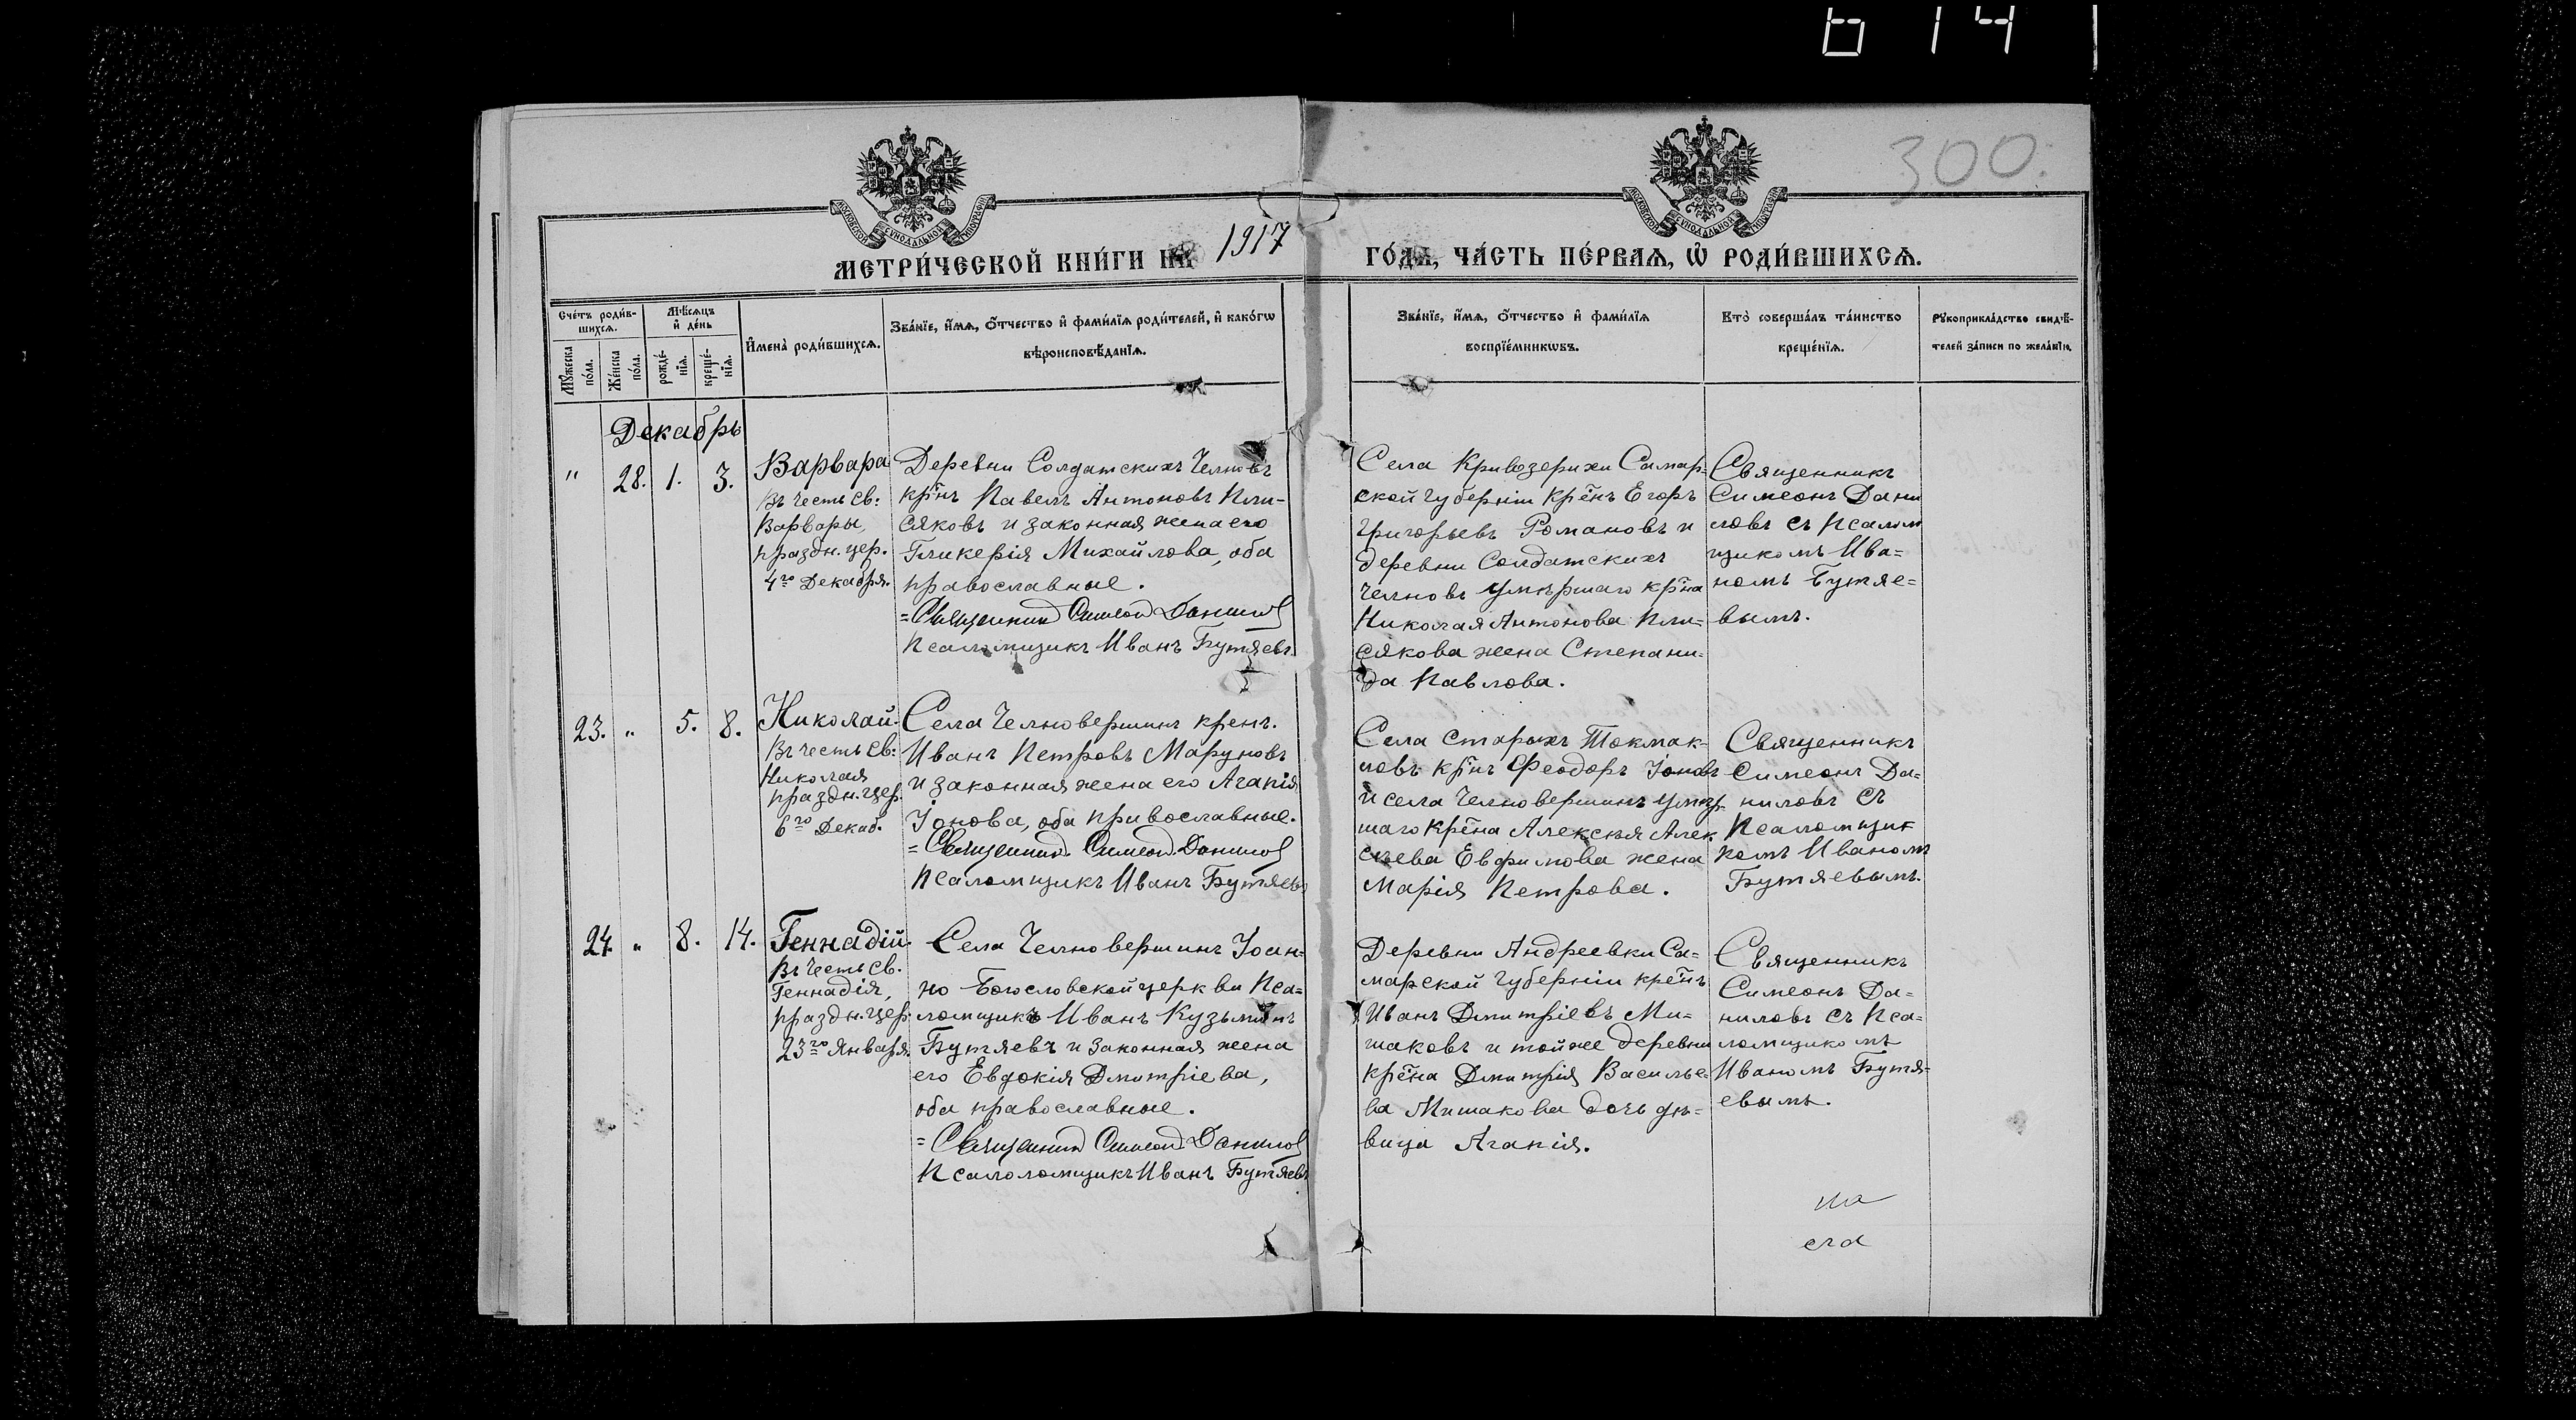 614
300.
МОСКОВСКОЙ СѴНОДАЛЬНОЙ ТИПОГРАФІИ
МОСКОВСКОЙ СѴНОДАЛЬНОЙ ТИПОГРАФІИ
МЕТРИ́ЧЕСКОЙ КНИ́ГИ НА 1917 ГО́ДЪ, ЧА́СТЬ ПЕ́РВАѦ, Ѡ҆ РОДИ́ВШИХСѦ.
Сче́тъ роди́в-
шихсѧ.
Мꙋ́жеска по́ла.
Же́нска по́ла.
Мѣ́сѧцъ
и҆ де́нь
рожде́-
нїѧ.
креще́-
нїѧ.
И҆мена̀ роди́вшихсѧ.
Зва́нїе, и҆́мѧ, ѻ҆́тчество и҆ фами́лїѧ роди́телей, и҆ како́гѡ
вѣроисповѣ́данїѧ.
Зва́нїе, и҆́мѧ, ѻ҆́тчество и҆ фами́лїѧ
воспрїе́мникѡвъ.
Кто̀ соверша́лъ та́инство
креще́нїѧ.
Рꙋкоприкла́дство свидѣ́-
телей за́писи по жела́нїю.
Декабрь
" 28. 1. 3.
Варвара
Въ честь св:
Варвары,
праздн. цер.
4го Декабря.
Деревни Солдатскихъ Челновъ
крнъ Павелъ Антоновъ Пли-
сяковъ и законная жена его
Гликерія Михайлова, оба
православные.
=Священникъ Симеонъ Даниловъ
Псаломщикъ Иванъ Бутяевъ.
Села Кривозерихи Самар-
ской губерніи крёнъ Егоръ
Григорьевъ Романовъ и
деревни Солдатскихъ
Челновъ умѣршаго крна
Николая Антонова Пли-
сякова жена Степани-
да Павлова.
Священникъ
Симеонъ Дани
ловъ съ Псалом
щикомъ Ива-
номъ Бутяе-
вымъ.
23. " 5. 8.
Николай.
Въ честь св:
Николая
праздн. цер.
6го Декаб.
Села Челновершинъ кренъ.
Иванъ Петровъ Маруновъ
и законная жена его Агапія
Іонова, оба православные.
=Священникъ Симеонъ Даниловъ
Псаломщикъ Иванъ Бутяевъ
Села Старыхъ Токмак-
ловъ крнъ Феодоръ Іоновъ
и села Челновершинъ умер
шаго крёна Алексѣя Алек.
сѣева Евфимова жена
Марія Петрова.
Священникъ
Симеонъ Да-
ниловъ съ
Псаломщик
комъ Иваномъ
Бутяевымъ.
24. " 8. 14.
Геннадій.
Въ честь св.
Геннадія,
праздн. цер.
23го Января.
Села Челновершинъ Іоан-
но Богословской церкви Пса-
ломщикъ Иванъ Кузьминъ
Бутяевъ и законная жена
его Евдокія Дмитріева,
оба православные.
=Священникъ Симеонъ Даниловъ
Псалоломщикъ Иванъ Бутяевъ
Деревни Андреевки Са-
марской губерніи крёнъ
Иванъ Дмитріевъ Ми-
шаковъ и той же деревни
крёна Дмитрія Василье-
ва Мишакова дочь дѣ-
вица Агапія.
Священникъ
Симеонъ Да-
ниловъ съ Пса-
ломщикомъ
Иваномъ Бутя-
евымъ.